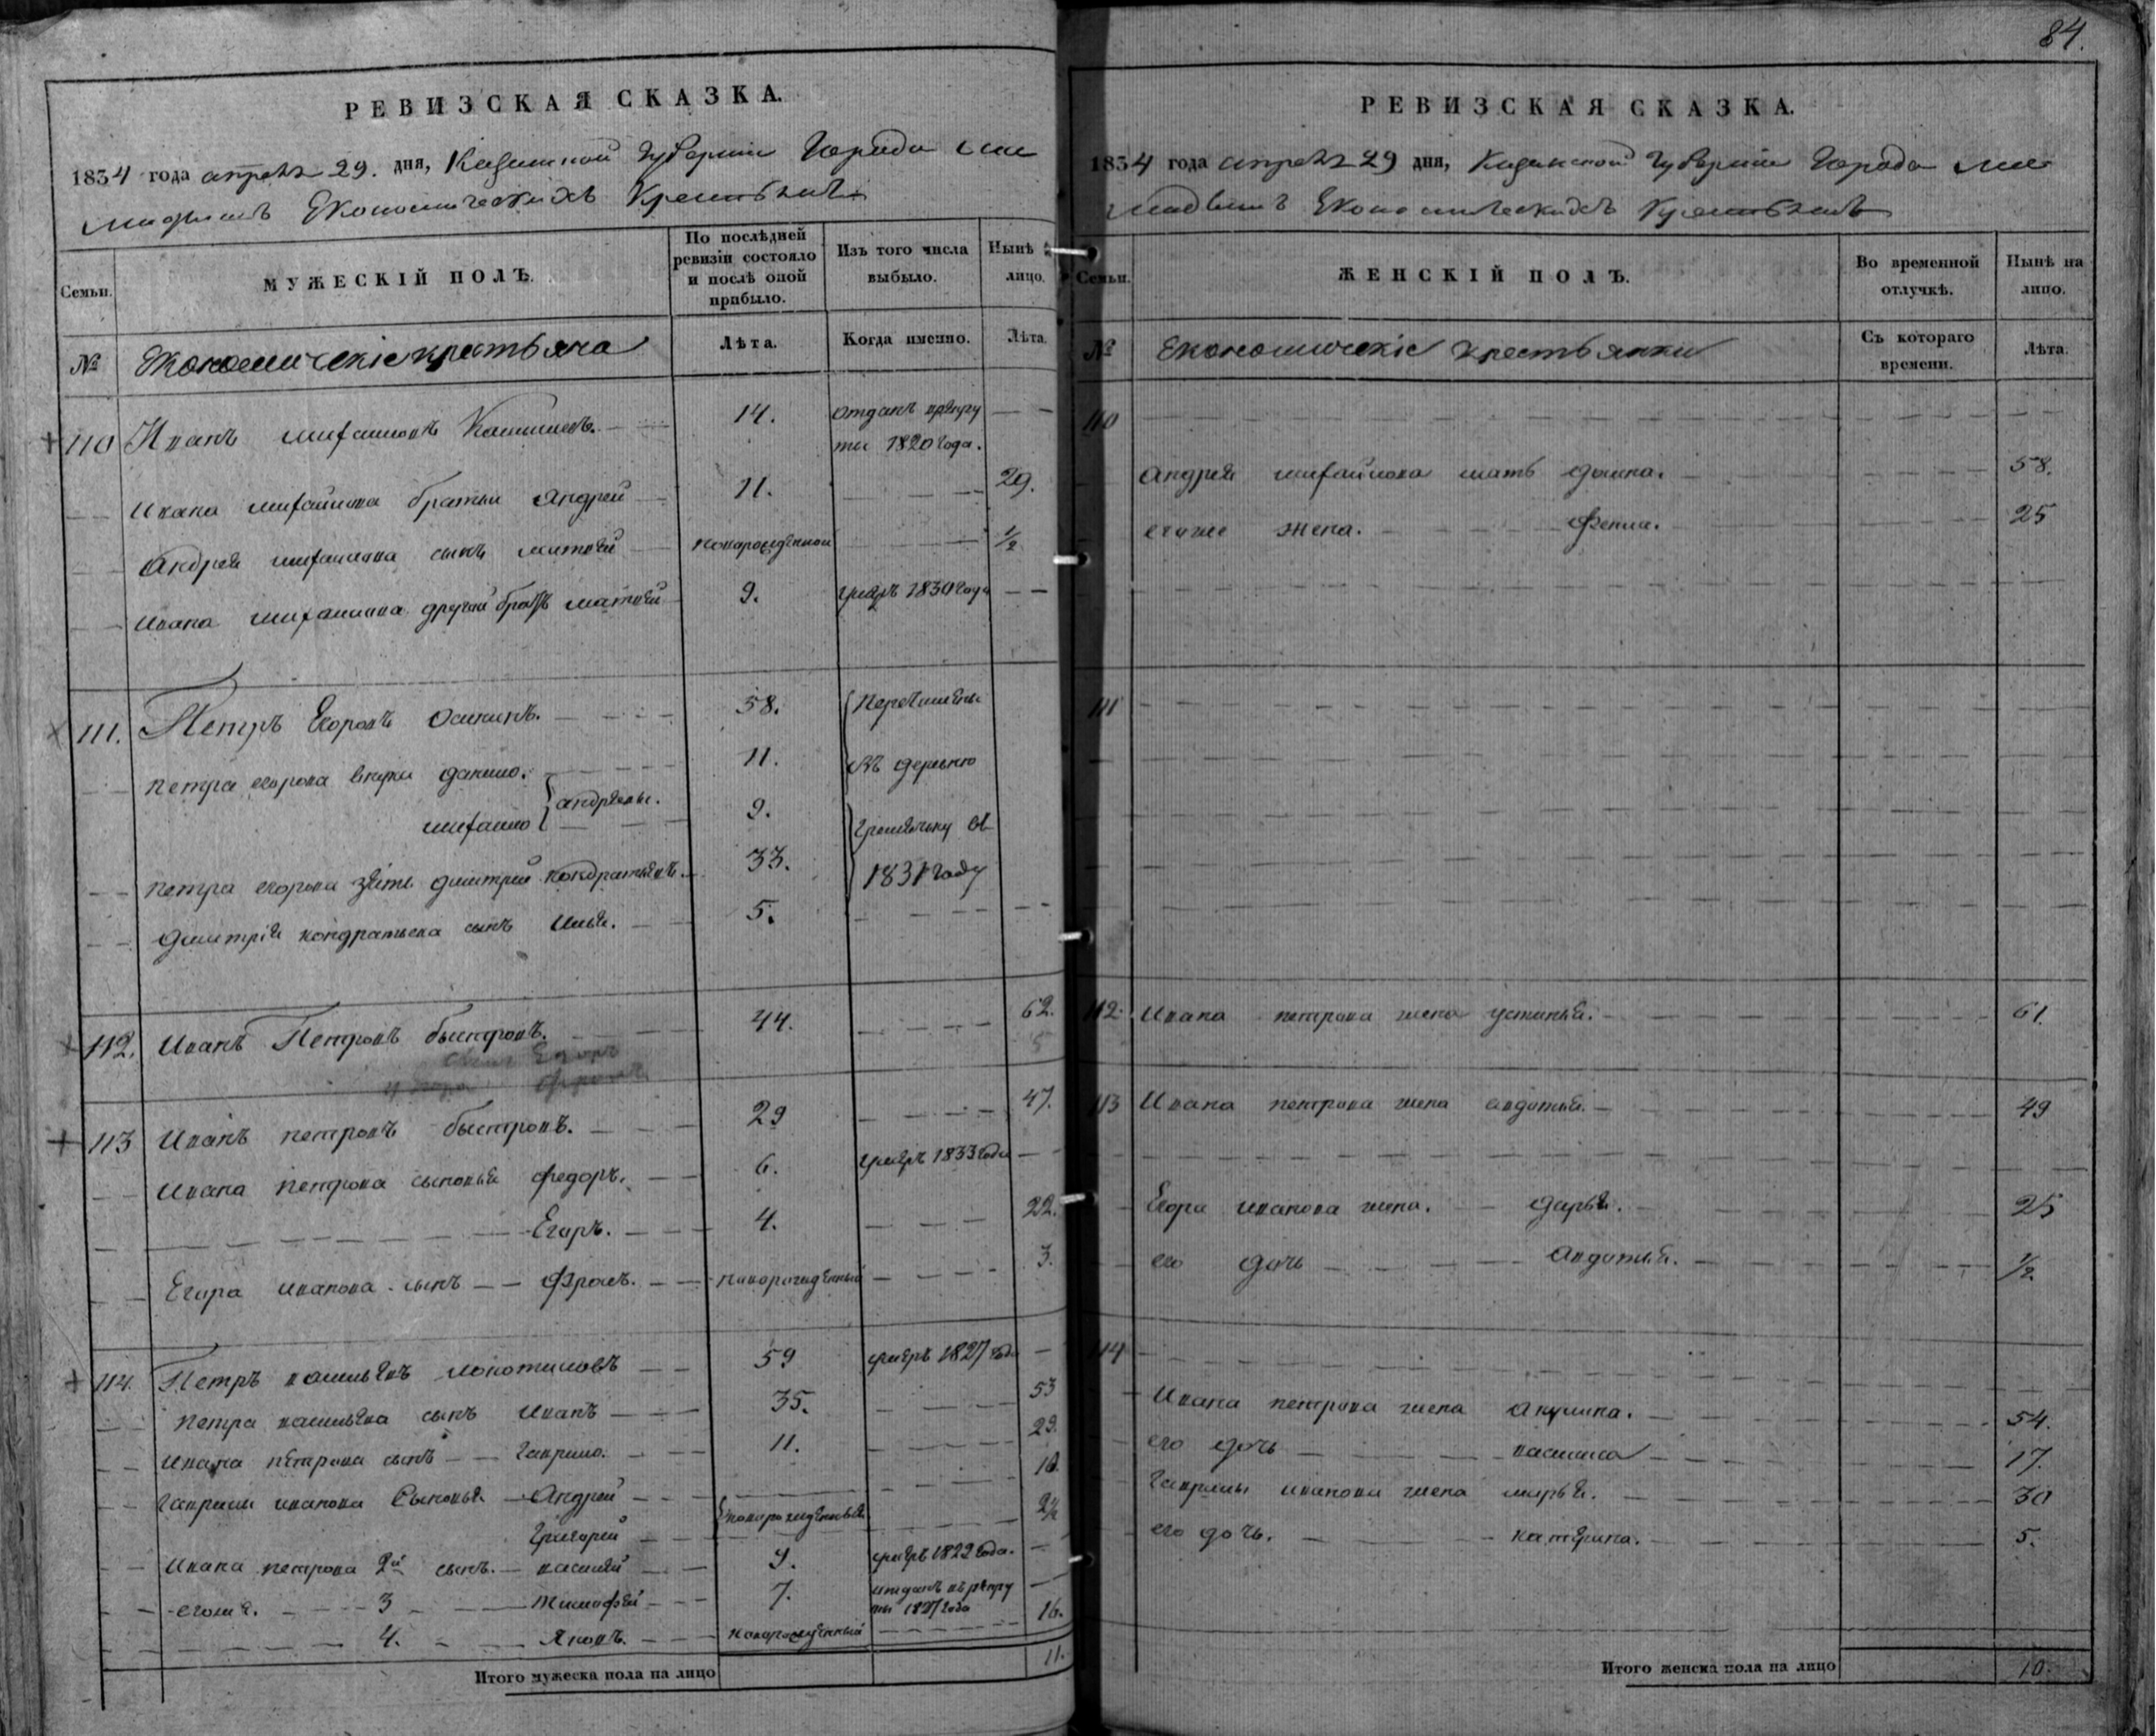 РЕВИЗСКАЯ СКАЗКА.
1834 года апреля 29. дня, Казанской Губернии Города
Економическихъ Крестьянъ
Семьи.
МУЖЕСКІЙ ПОЛЪ.
По послѣдней ревизіи состояло и послѣ оной прибыло.
Изъ того числа выбыло.
Нынѣ на лицо.
№
Економическіе крестьяна
Лѣта.
Когда именно.
Лѣта.
110 Иванъ Михайловъ 14. отданъ врекру
ты 1820 года.
Ивана Михайлова братьи Андрей 11. 29.
Андрея Михайлова сынъ Матвей новорожденной ½
Ивана Михайлова другой братъ Матвей 9. умеръ 1830 года
111. Петръ Егоровъ Осипинъ. 58. Перечислены
Петра Егорова внуки Данило. 11. въ деревню
Михайло Андреевы. 9. въ
Петра Егорова зять Дмитрей Кондратьевъ. 33. 1831 году
Дмитрія Кондратьева сынъ Илья. 5.
112. Иванъ Петровъ Быстровъ. 44. 62.
сынъ Егоръ 5
Егора Фролъ
113 Иванъ Петровъ Быстровъ. 29 47.
Ивана Петрова сыновья Федоръ. 6. умеръ 1833 года
Егоръ. 4. 22.
Егора Иванова сынъ Фролъ. новорожденный 3.
114. Петръ Васильевъ Локотиловъ 59 умеръ 1827 года
Петра Васильева сынъ Иванъ 35. 53
Ивана Петрова сынъ Гаврило. 11. 29.
Гаврилы Иванова Сыновья Андрей новорожденныя 10.
Григорей 2½
Ивана Петрова 2й сынъ. Василей 9. умеръ 1822 года.
его же. 3 Тимофей 7. отданъ въ рекру
ты 1827 года
4. Яковъ. новорожденный 16.
Итого мужеска пола на лицо 11.
84.
РЕВИЗСКАЯ СКАЗКА.
1834 года апреля 29 дня, Казанской Губернии Города
Економическихъ Крестьянъ
Семьи.
ЖЕНСКІЙ ПОЛЪ.
Во временной отлучкѣ.
Нынѣ на лицо.
№
Економическіе крестьянки
Съ котораго времени.
Лѣта.
110
Андрея Михайлова мать Домна. 58.
его же жена. Фекла. 25
111
112. Ивана Петрова жена Устинья. 61.
113 Ивана Петрова жена Авдотья. 49
Егора Иванова жена. Дарья. 25
его дочь Авдотья. ½
114
Ивана Петрова жена Акулина. 54.
его дочь Василиса 17.
Гаврилы Иванова жена Марья. 30
его дочь. Катерина. 5.
Итого женска пола на лицо 10.